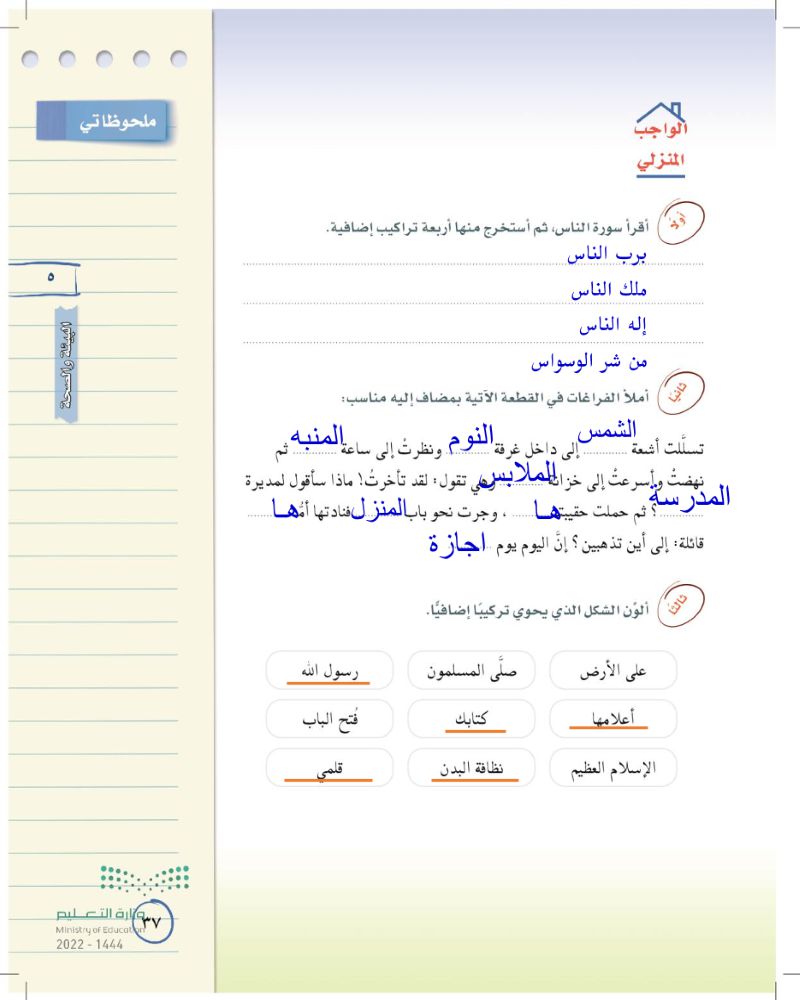 ملحوظاتي
الواجب
المنزلي
أولًا
أقرأ سورة الناس، ثم أستخرج منها أربعة تراكيب إضافية.
برب الناس
ملك الناس
إله الناس
من شر الوسواس
ثانيًا
أملأ الفراغات في القطعة الآتية بمضاف إليه مناسب:
تسلَّلت أشعة الشمس إلى داخل غرفة النوم ونظرتْ إلى ساعة المنبه ثم
نهضتْ وأسرعتْ إلى خزانة الملابس وهي تقول: لقد تأخرتُ! ماذا سأقول لمديرة
المدرسة؟ ثم حملت حقيبتها، وجرت نحو باب المنزل فنادتها أمُّها
قائلة: إلى أين تذهبين؟ إنَّ اليوم يوم اجازة
ثالثًا
ألوّن الشكل الذي يحوي تركيبًا إضافيًّا.
على الأرض صلَّى المسلمون رسول الله
أعلامها كتابك فُتح الباب
الإسلام العظيم نظافة البدن قلمي
٥
البيئة والصحة
وزارة التعـليم
Ministry of Education
2022 - 1444
٣٧